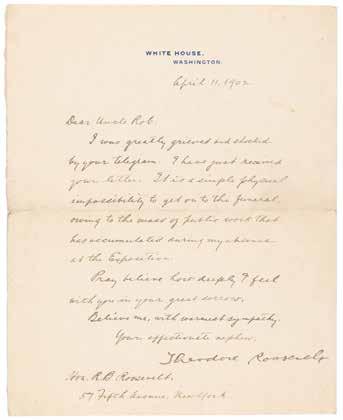 WHITE HOUSE,
WASHINGTON.
April 11, 1902
Dear Uncle Rob:
I was greatly grieved and shocked
by your telegram. I have just received
your letter. It is a simple physical
impossibility to get on to the funeral,
owing to the mass of public work that
has accumulated during my absence
at the Exposition.
Pray believe how deeply I feel
with you in your great sorrow.
Believe me, with warmest sympathy,
Your affectionate nephew,
Theodore Roosevelt
Hon. R. B. Roosevelt,
57 Fifth Avenue, New York